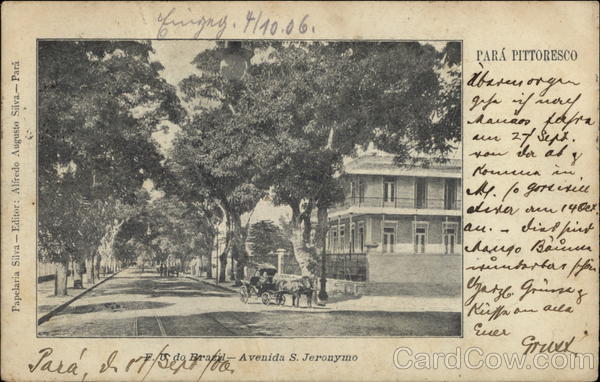 Eingeg. 4/10.06.
PARÁ PITTORESCO
Papelaria Silva.— Editor: Alfredo Augusto Silva.— Pará
Übermorgen
gehe ich nach
Manáos
am 27 Sept.
von da ab
komme in
am 14 Oct.
an. – dies sind
Mango Bäume
wunderbar schön
Herzl. Grüsse &
Küsse an alle
Euer
Ernst.
E. U. do Brazil — Avenida S. Jeronymo
Pará, d. 17/Sept/06.
CardCow.com